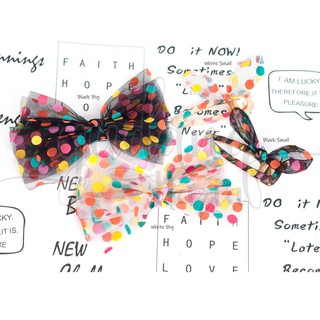 nnings
FAITH
HOPE
O
Black Big
DO it NOW!
Sometimes
"Later"
Becomes
Never"
White Small
I AM LUCKY
THEREFORE, IT
PLEASURE
Black Small
LUCKY.
IT IS.
RE
NEW
White Big
NEW
FAITH
HOPE
LOVE
DO it
Sometimes
"Late
Becom